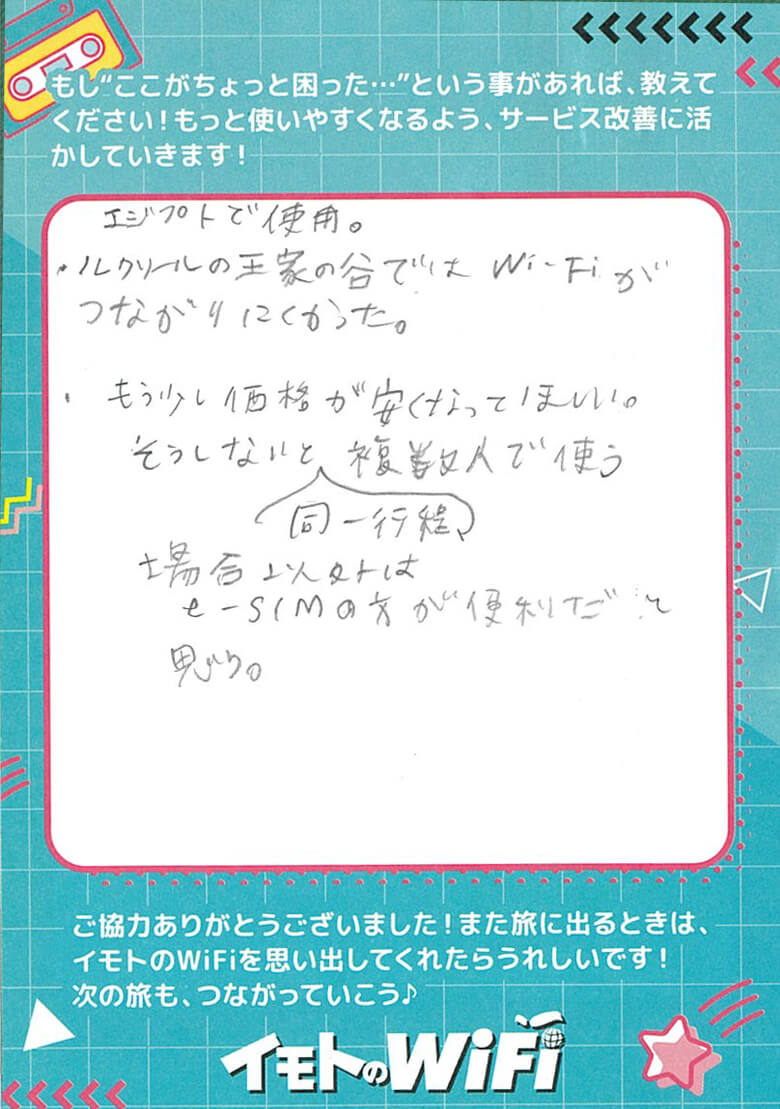 もし“ここがちょっと困った…”という事があれば、教えて
ください！もっと使いやすくなるよう、サービス改善に活
かしていきます！
エジプトで使用。
・ルクソールの王家の谷では Wi-Fiが
つながりにくかった。
・もう少し価格が安くなってほしい。
そうしないと 複数人で使う
同一行程
場合以外は
e-SIMの方が便利だと
思う。
ご協力ありがとうございました！また旅に出るときは、
イモトのWiFiを思い出してくれたらうれしいです！
次の旅も、つながっていこう♪
イモトのWiFi